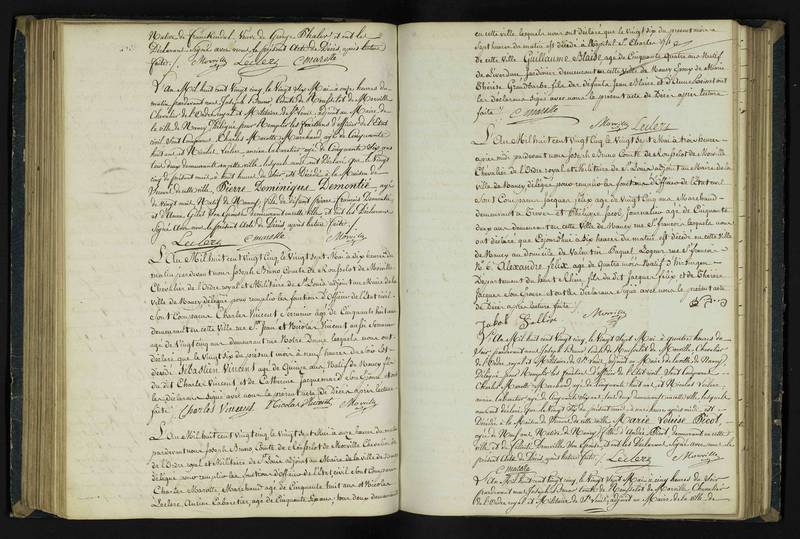 Déclarans Signé avec nous le présent Acte de Décès, après lecture
faite /. Morville Leclerc Marotte
L'An Mil huit cent Vingt cinq, le Vingt Six Mai à onze heures du
matin, pardevant nous Joseph Bruno Comte de Rousselot de Morville
Chevalier de l'Ordre royal et Militaire de St Louis, adjoint au Maire de
la Ville de Nancy, Délégué pour remplir les fonctions d'officier de l'Etat
civil, sont comparus Charles Marotte Marchand, agé de Cinquante
huit ans, et Nicolas Leclerc, ancien Cabaretier, agé de Cinquante Six ans
tous deux demeurans en cette ville, lesquels nous ont Déclaré que le Vingt
cinq du présent mois, à huit heures du Soir, est Décédé à la Maison de
Secours de cette ville, Pierre Dominique Demontié, agé
de Vingt mois, Natif de Nancy, fils de défunt Pierre François Demontié
demeurant en cette Ville, et ont les Déclarans
Signé avec nous le présent Acte de Décès après lecture faite /.
Leclerc Marotte Morville
L'An Mil huit cent Vingt cinq, le Vingt Sept Mai à dix heures du
matin, pardevant nous Joseph Bruno Comte de Rousselot de Morville
Chevalier de l'Ordre royal et Militaire de St Louis adjoint au Maire de la
Ville de Nancy délégué pour remplir les fonctions d'officier de l'état civil
Sont Comparus Charles Vincent agé de Cinquante huit ans
demeurant en cette Ville rue St Jean et Nicolas Vincent
agé de Vingt cinq ans demeurant rue Notre Dame, lesquels nous ont
déclaré que le Vingt Six du présent mois à neuf heures du Soir Est
décédé Sébastien Vincent agé de Quinze ans, Natif de Nancy fils
du dit Charles Vincent et de Catherine Jacquemard Son Epouse, et ont
les Déclarans Signé avec nous le présent acte de Décès après lecture
faite / Charles Vincent Nicolas Vincent Morville
L'An Mil huit cent Vingt cinq, le Vingt Sept Mai à onze heures du matin
pardevant nous Joseph Bruno Comte de Rousselot de Morville Chevalier de
de l'Ordre royal et Militaire de St Louis adjoint au Maire de la Ville de Nancy
délégué pour remplir les fonctions d'officier de l'Etat civil sont Comparus
Charles Marotte, Marchand, agé de Cinquante huit ans et Nicolas
Leclerc, Ancien Cabaretier, agé de Cinquante Six ans, tous deux demeurant
en cette ville, lesquels nous ont déclaré que le Vingt Six du present mois à
Sept heures du matin est décédé à l'hôpital St Charles
de cette Ville Guillaume Blaise, agé de Cinquante quatre ans Natif
de Liverdun, Jardinier demeurant en cette Ville de Nancy, Epoux de Marie
Thérèse Grandbarbe, fils de défunts Jean Blaise et d'Anne et ont
les déclarans Signé avec nous le présent acte de Décès après lecture
faite / Marotte Morville Leclerc
L'An Mil huit cent Vingt cinq le Vingt Sept Mai à trois heures
après midi pardevant nous Joseph Bruno Comte de Rousselot de Morville
Chevalier de l'Ordre royal et Militaire de St Louis adjoint au Maire de la
Ville de Nancy délégué pour remplir les fonctions d'Officier de l'Etat civil
Sont Comparus Jacques Félix agé de Vingt cinq ans Marchand
demeurant à et Philippe Jacob Journalier agé de Cinquante
deux ans demeurant en cette Ville de Nancy rue St François lesquels nous
ont déclaré que Cejourd'hui à Six heures du matin est décédé en cette Ville
de Nancy au domicile de Valentin Paquet Logeur rue St François
N° 6. Alexandre Félix agé de quatre mois Natif d'
Département du haut Rhin, fils du dit Jacques Félix et de Thérèse
Jacques Son Epouse et ont les déclarans Signé avec nous le présent acte
de Décès après lecture faite /.
Morville
L'An Mil huit cent Vingt cinq, le Vingt Sept Mai à quatre heures du
Soir pardevant nous Joseph Bruno Comte de Rousselot de Morville, Chevalier
de l'Ordre royal et Militaire de St Louis, adjoint au Maire de la Ville de Nancy
Délégué pour remplir les fonctions d'officier de l'Etat civil, Sont Comparus
Charles Marotte Marchand agé de Cinquante huit ans, et Nicolas Leclerc,
ancien Cabaretier agé de Cinquante Six ans, tous deux demeurans en cette ville, lesquels
nous ont déclaré que le Vingt Six du présent mois à onze heures après midi, est
Décédée à la Maison de Secours de cette ville Marie Louise Picot,
agée de Neuf ans, Native de Nancy, fille d'André Picot, demeurant en cette
Ville et de Son Epouse, et ont les Déclarans Signé avec nous le
présent Acte de Décès, après lecture faite /. Leclerc Morville
Marotte
L'An Mil huit cent Vingt cinq, le Vingt Sept Mai à cinq heures du Soir
pardevant nous Joseph Bruno Comte de Rousselot de Morville, Chevalier
de l'Ordre royal et Militaire de St Louis, adjoint au Maire de la ville de